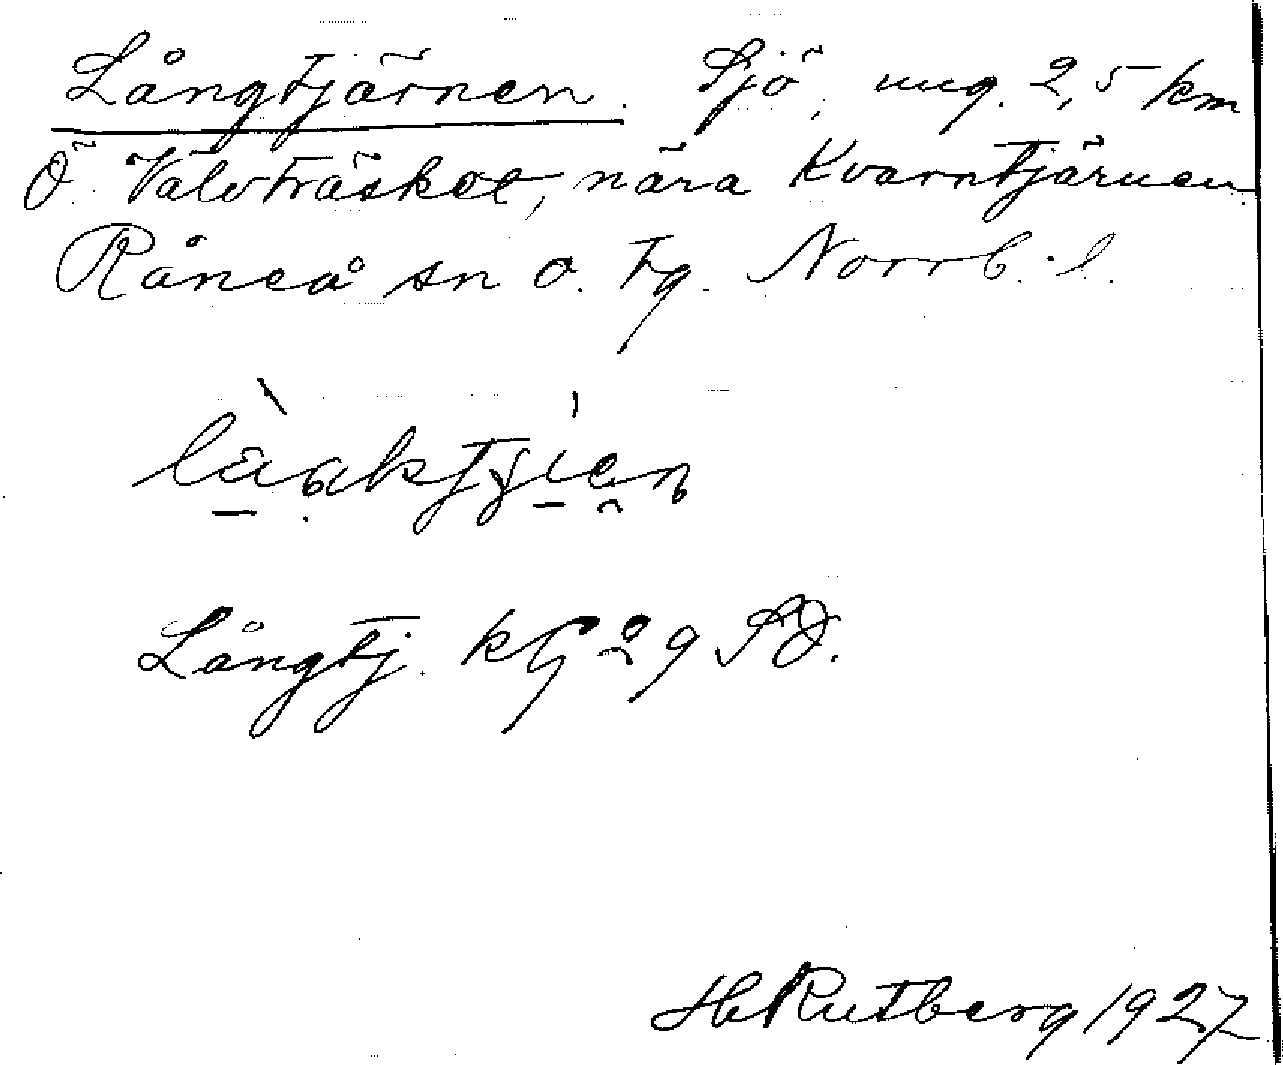 Långtjärnen. Sjö, ung. 2,5 km
Ö. Välvträsket, nära Kvarntjärnen
Råneå sn o. tg. Norrb. l.
Långtj. 29 SO.
H Rutberg 1927